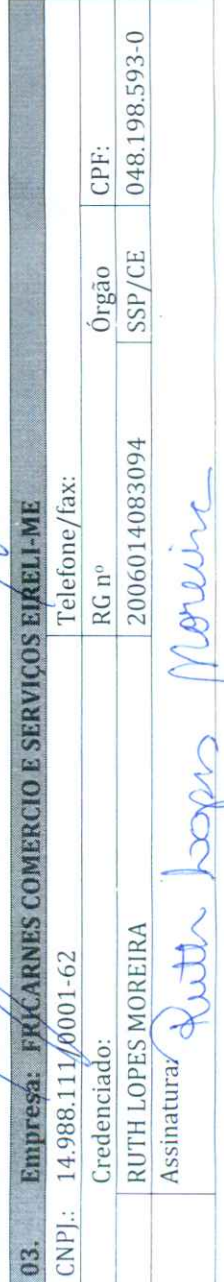 03. Empresa: FRICARNES COMERCIO E SERVIÇOS EIRELI-ME
CNPJ.: 14.988.111/0001-62 Telefone/fax:
Credenciado: RG nº Órgão CPF:
RUTH LOPES MOREIRA 2006014083094 SSP/CE 048.198.593-0
Assinatura: Ruth Lopes Moreira